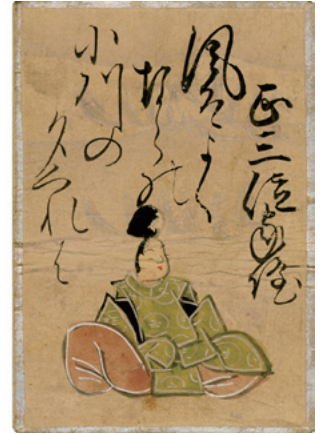 正三位家隆
風そよく
ならの
小川の
夕くれは